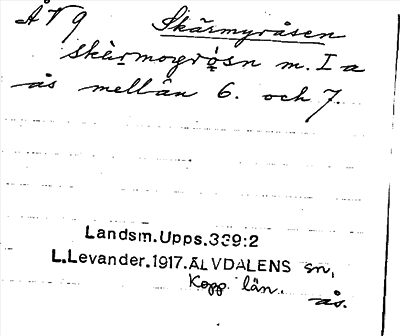 ÅV9 Skärmyråsen
skärmogrǫsn m. I a
ås mellan 6. och 7.
Landsm.Upps.339:2
L.Levander.1917.ÄLVDALENS sn,
Kopp. län.
ås.